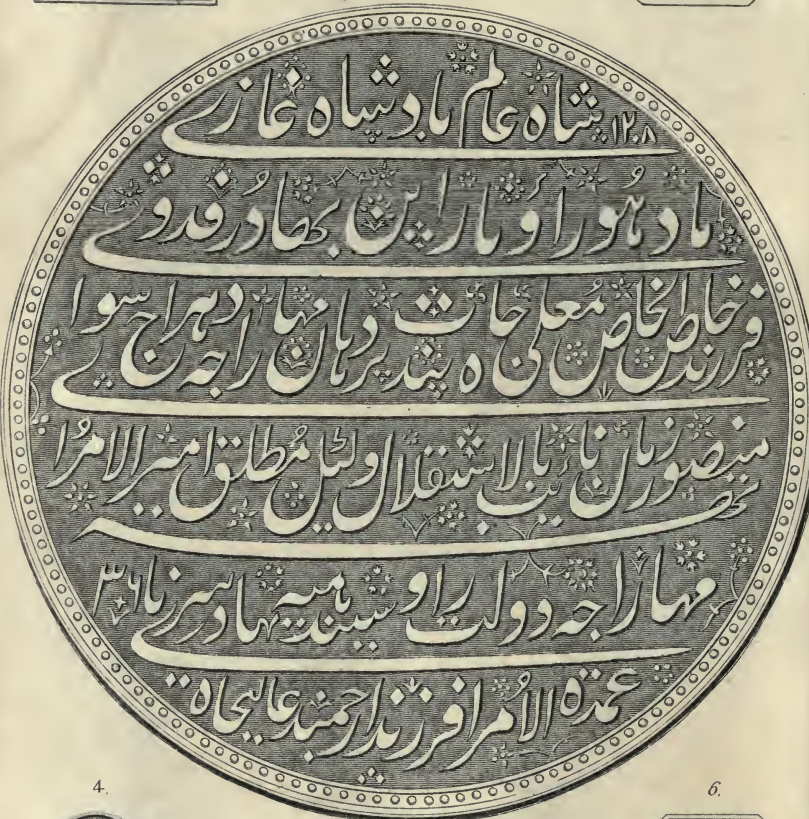 شاه عالم بادشاه غازے ۱۲۰۸
ماد ہوراو ناراین بھادر فدوے
فرزند خاص الخاص معلی جاہ پندیر دہان مہاراجہ دہراج سواے
منصور زمان نائب بالاستقلال ولیل مطلق امیر الامرا
مہاراجہ دولت راو سیندہیہ بہادر سرزنا ۳۶
عمدة الامرا فرزند ارجمند عالیجاہ
4.
6.